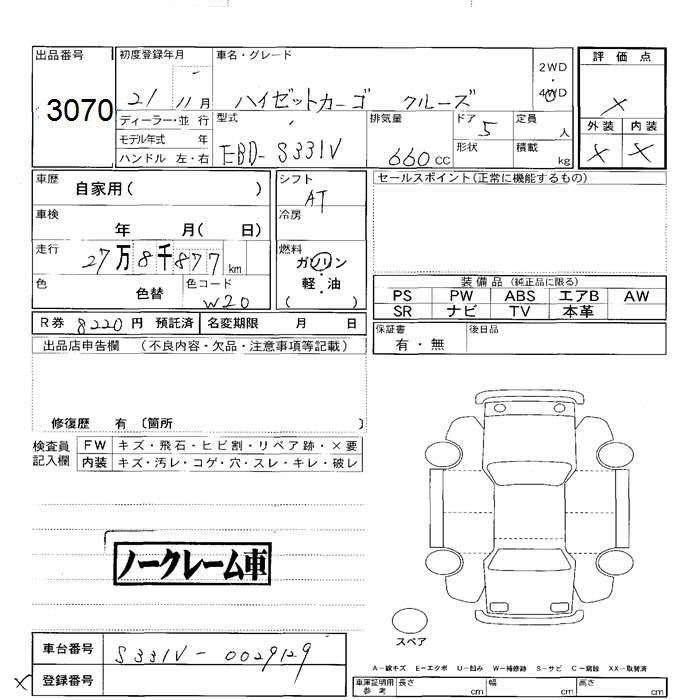 出品番号
3070
初度登録年月
21 11月
車名・グレード
ハイゼットカーゴ クルーズ
2WD
・
4WD
評価点
×
外装 内装
× ×
ディーラー・並行
モデル年式 年
ハンドル 左・右
型式
EBD-S331V
排気量
660cc
ドア 5
形状
定員
人
積載
kg
車歴 自家用( )
車検
年 月( 日)
走行
27万8千877km
色
色替
色コード
W20
シフト
AT
冷房
燃料
ガソリン
・
軽・油
( )
セールスポイント(正常に機能するもの)
装備品 (純正品に限る)
PS PW ABS エアB AW
SR ナビ TV 本革
R券 8220円 預託済 名変期限 月 日
保証書
有・無
後日品
出品店申告欄 (不良内容・欠品・注意事項等記載)
修復歴 有 〔箇所 〕
検査員
記入欄
FW キズ・飛石・ヒビ割・リペア跡・×要
内装 キズ・汚レ・コゲ・穴・スレ・キレ・破レ
ノークレーム車
スペア
車台番号 S331V-0029129
× 登録番号
A-線キズ E-エクボ U-凹み W-補修跡 S-サビ C-腐蝕 XX-取替済
車庫証明用
参考
長さ cm 幅 cm 高さ cm